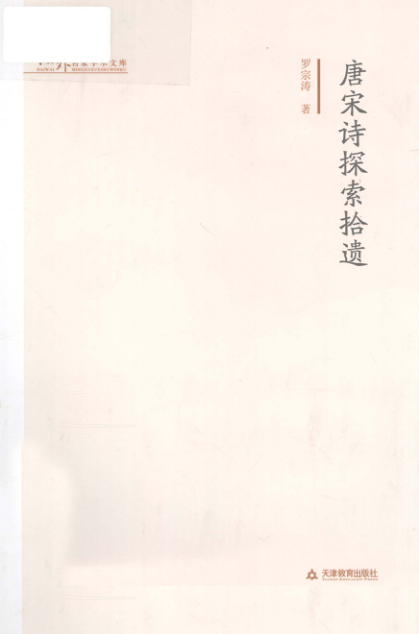 名家学术文库
唐宋诗探索拾遗
罗宗涛 著
天津教育出版社
TIANJIN EDUCATION PRESS